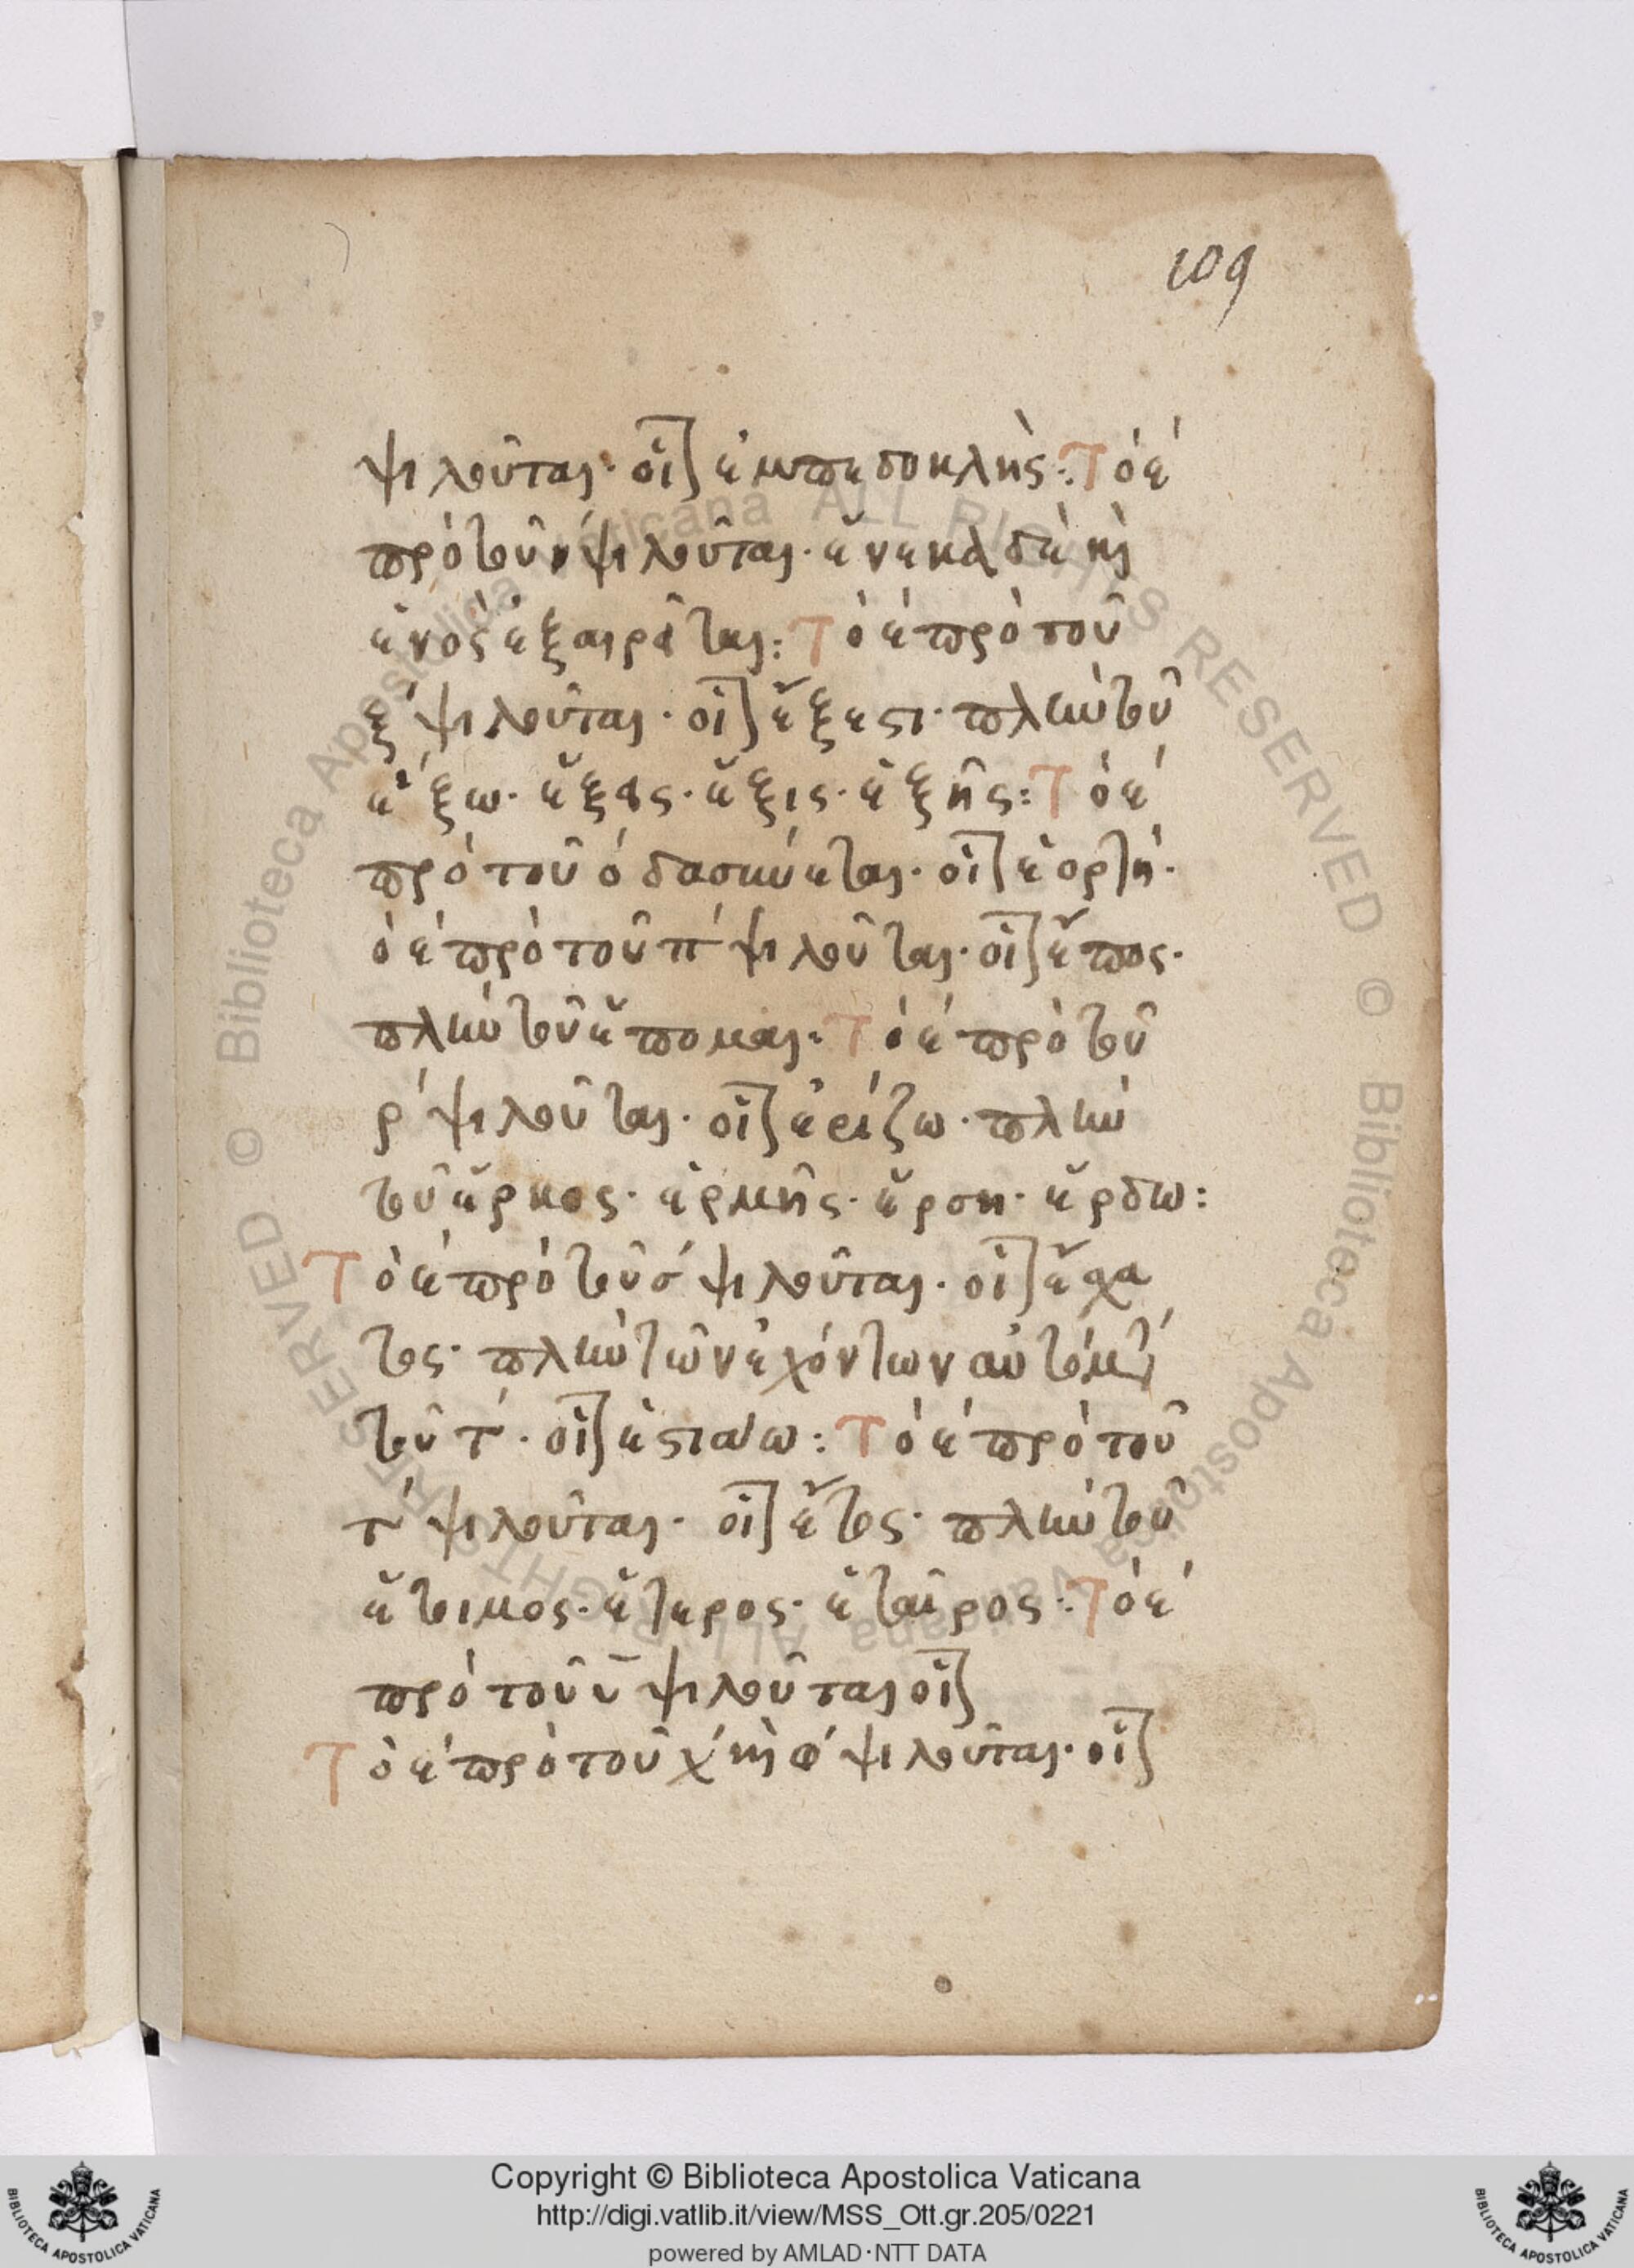 109
ψιλοῦται· οἷον ἐμπεδοκλῆς: Τὸ ε
πρὸ τοῦ ν ψιλοῦται· ἕνεκα δὲ καὶ
ἑνὸς ἐξαιρεῖται: Τὸ ε πρὸ τοῦ
ξ ψιλοῦται· οἷον ἔξεστι· πλὴν τοῦ
ἕξω· ἕξεις· ἕξις· ἑξῆς: Τὸ ε
πρὸ τοῦ ο δασύνεται· οἷον ἑορτή·
ὸ ε πρὸ τοῦ π ψιλοῦται· οἷον ἔπος·
πλὴν τοῦ ἕπομαι: Τὸ ε πρὸ τοῦ
ρ ψιλοῦται· οἷον ἐρίζω· πλὴν
τοῦ ἕρκος· ἑρμῆς· ἕρση· ἕρδω:
Τὸ ε πρὸ τοῦ σ ψιλοῦται· οἷον ἔσχα
τος· πλὴν τῶν ἐχόντων αὐτὸ μετὰ
τοῦ τ· οἷον ἑστιάω: Τὸ ε πρὸ τοῦ
τ ψιλοῦται· οἷον ἔτος· πλὴν τοῦ
ἕτοιμος· ἕτερος· ἑταῖρος: Τὸ ε
πρὸ τοῦ υ ψιλοῦται οἷον
Τὸ ε πρὸ τοῦ χ καὶ φ ψιλοῦται· οἷον
Copyright © Biblioteca Apostolica Vaticana
http://digi.vatlib.it/view/MSS_Ott.gr.205/0221
powered by AMLAD·NTT DATA